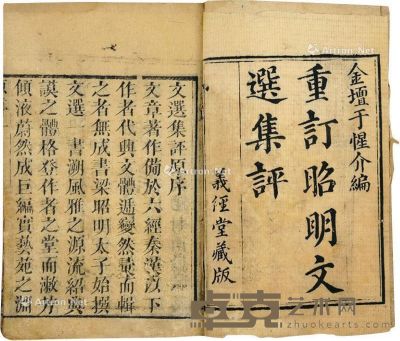 金壇于惺介編
重訂昭明文
選集評
義經堂藏版
文選集評原序
文章著作備於六經秦漢以下
作者代興文體遞變然彙而輯
之者無成書梁昭明太子始撰
文選一書溯風雅之源流紹典
謨之體格登作者之堂而漱芳
傾液蔚然成巨編實藝苑之淵
Artron.Net
Artron.Net
卓克艺术网
zhuokearts.com